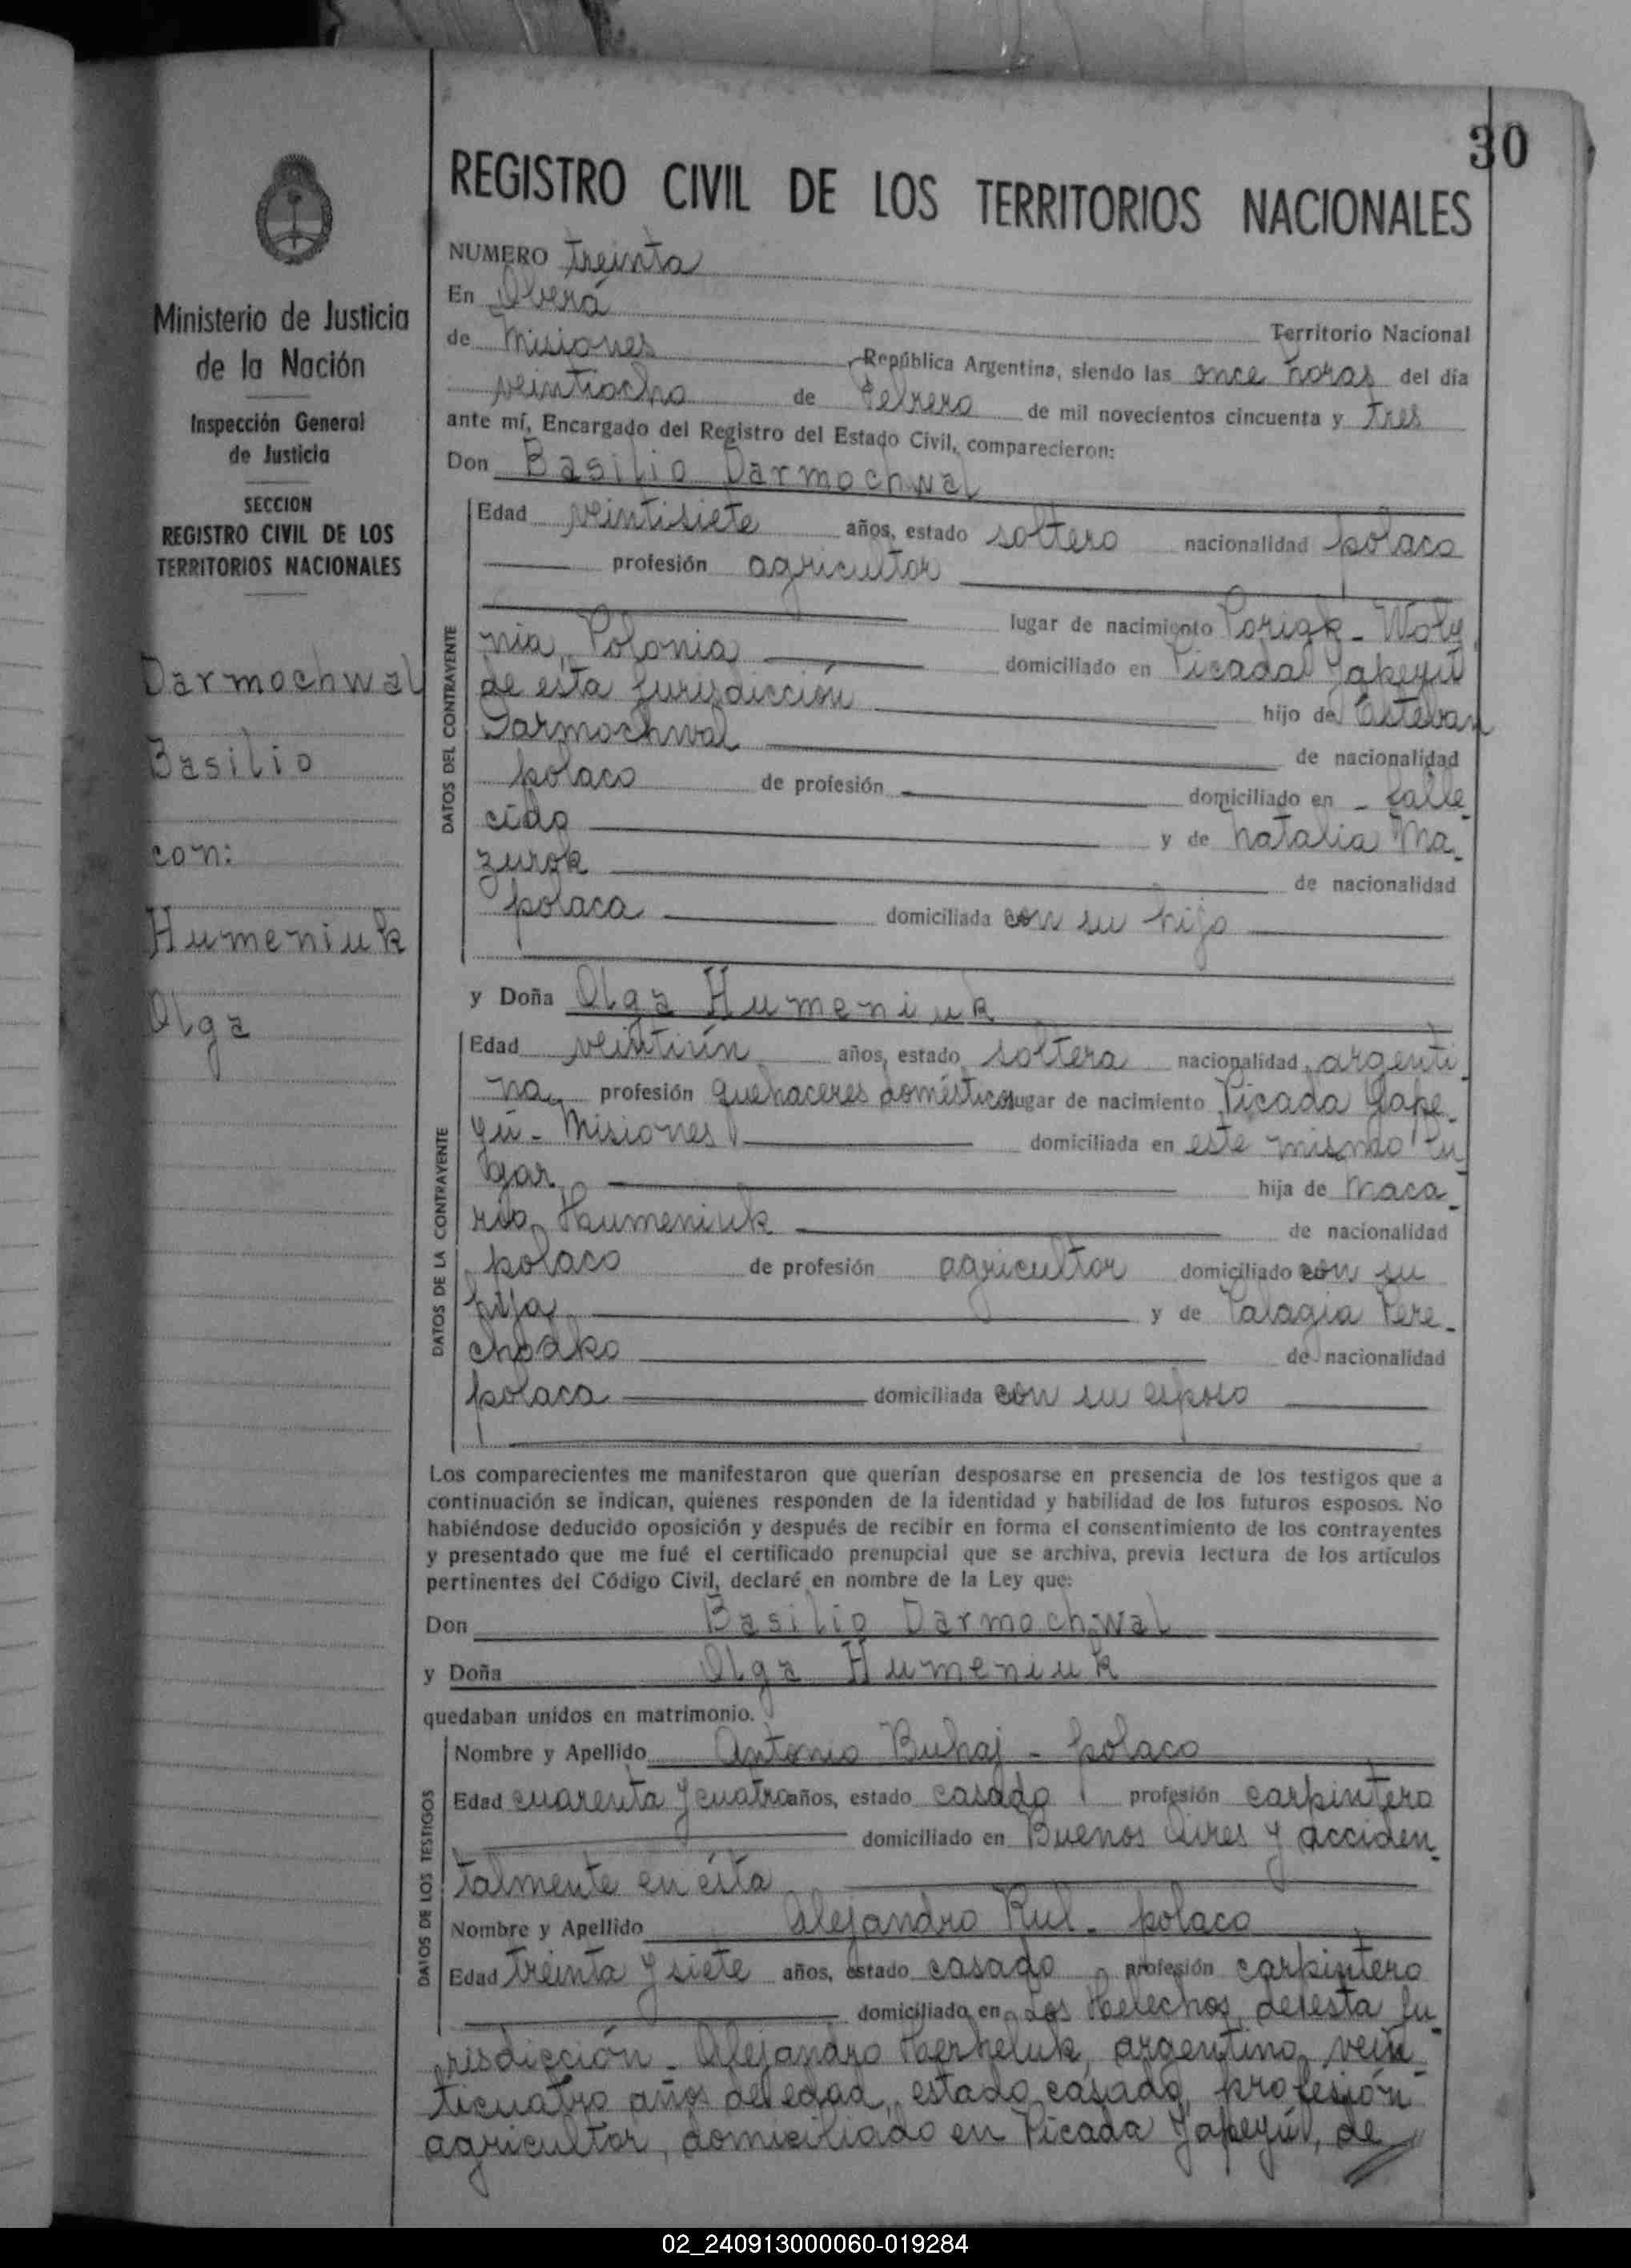 30
REGISTRO CIVIL DE LOS TERRITORIOS NACIONALES
Ministerio de Justicia
de la Nación
Inspección General
de Justicia
SECCION
REGISTRO CIVIL DE LOS
TERRITORIOS NACIONALES
Darmochwal
Basilio
con:
Humeniuk
Olga
NUMERO treinta
En Oberá
Territorio Nacional
de Misiones, República Argentina, siendo las once horas del día
veintiocho de Febrero de mil novecientos cincuenta y tres
ante mí, Encargado del Registro del Estado Civil, comparecieron:
Don Basilio Darmochwal
DATOS DEL CONTRAYENTE
Edad veintisiete años, estado soltero nacionalidad polaco
profesión agricultor
lugar de nacimiento Porigk - Woly
nia, Polonia domiciliado en Picada Yapeyú
de esta jurisdicción hijo de Estevan
Darmochwal de nacionalidad
polaco de profesión domiciliado en - falle
cido y de Natalia Ma-
zurok de nacionalidad
polaca domiciliada con su hijo
y Doña Olga Humeniuk
DATOS DE LA CONTRAYENTE
Edad veintiún años, estado soltera nacionalidad argenti
na, profesión quehaceres domésticos lugar de nacimiento Picada Yape-
yú - Misiones domiciliada en este mismo lu
gar hija de Maca-
rio Humeniuk de nacionalidad
polaco de profesión agricultor domiciliado con su
hija y de Palagia Pere-
chodko de nacionalidad
polaca domiciliada con su esposo
Los comparecientes me manifestaron que querían desposarse en presencia de los testigos que a
continuación se indican, quienes responden de la identidad y habilidad de los futuros esposos. No
habiéndose deducido oposición y después de recibir en forma el consentimiento de los contrayentes
y presentado que me fué el certificado prenupcial que se archiva, previa lectura de los artículos
pertinentes del Código Civil, declaré en nombre de la Ley que:
Don Basilio Darmochwal
y Doña Olga Humeniuk
quedaban unidos en matrimonio.
DATOS DE LOS TESTIGOS
Nombre y Apellido Antonio Buhaj - polaco
Edad cuarenta y cuatro años, estado casado profesión carpintero
domiciliado en Buenos Aires y acciden-
talmente en ésta
Nombre y Apellido Alejandro Kul - polaco
Edad treinta y siete años, estado casado profesión carpintero
domiciliado en Los Helechos, de esta ju-
risdicción - Alejandro Herheluk, argentino, vein-
ticuatro años de edad, estado casado, profesión
agricultor, domiciliado en Picada Yapeyú, de
02_240913000060-019284